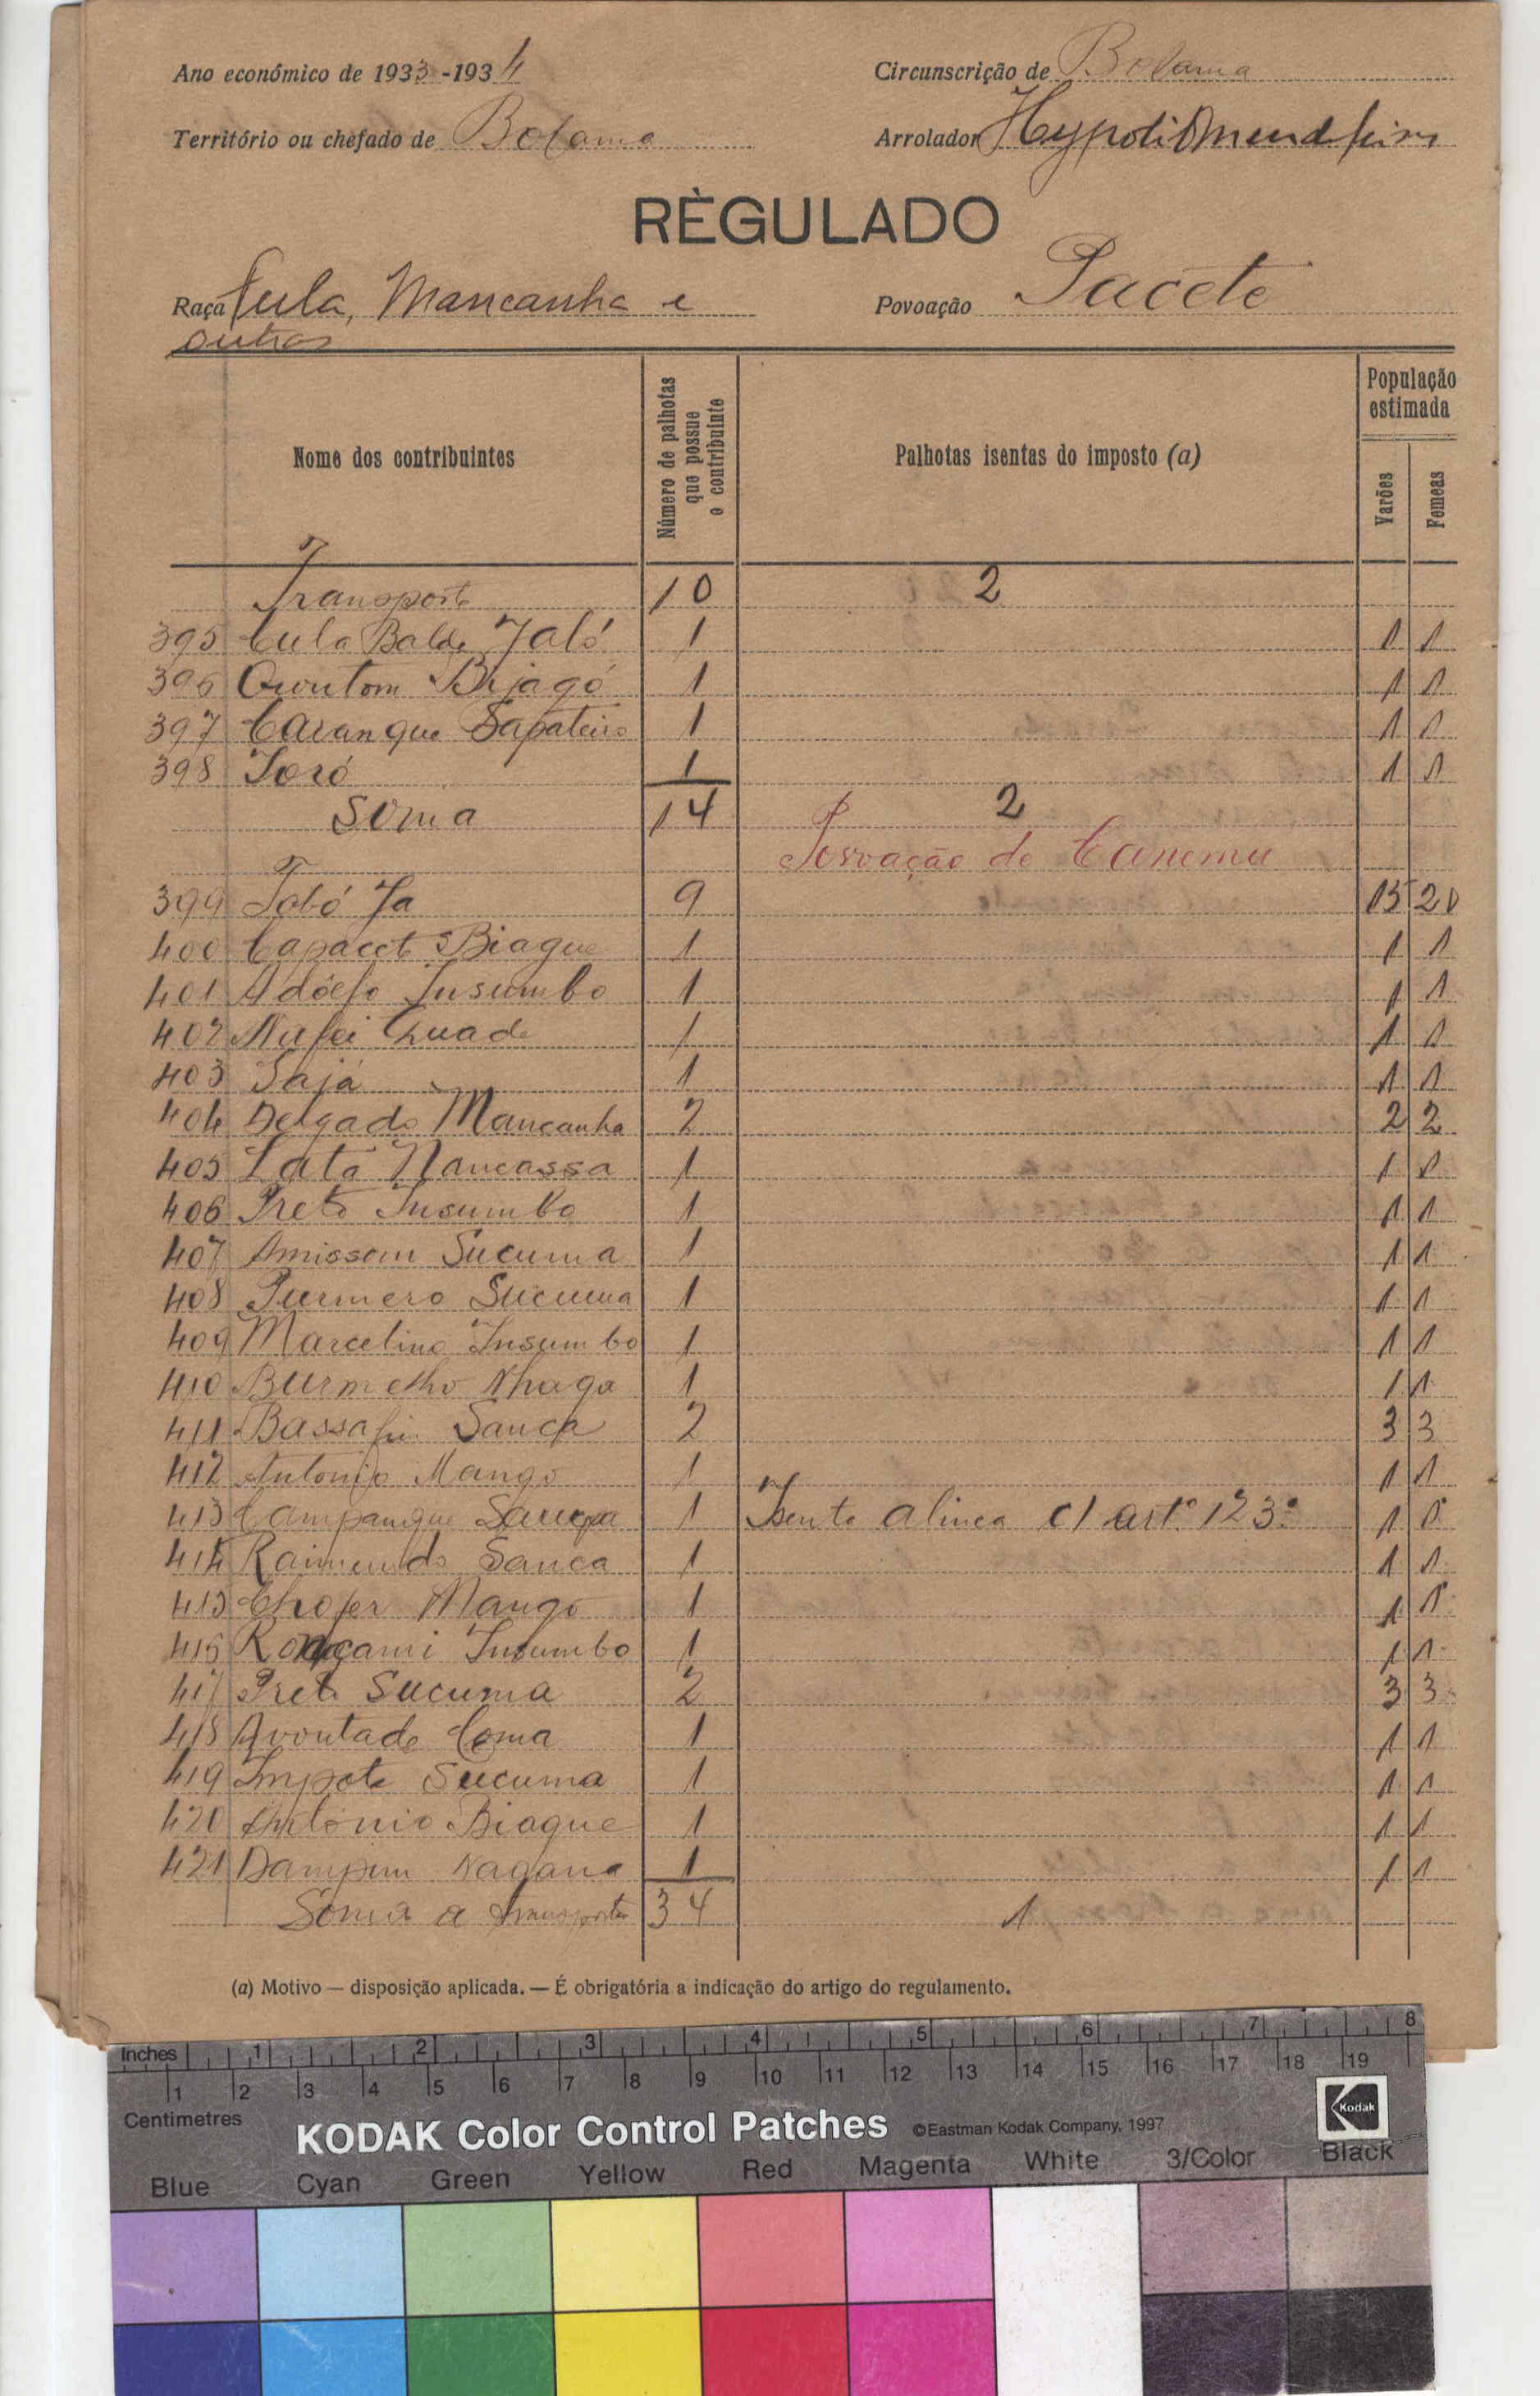 Ano económico de 1933-1934 Circunscrição de Bolama
Território ou chefado de Bolama Arrolador
RÈGULADO
Raça Fula, Mancanha e Povoação Pacete
outros
Nome dos contribuintes Número de palhotas que possue o contribuinte Palhotas isentas do imposto (a) População estimada Varões Femeas
Transporte 10 2
395 Cula Balde Jaló 1 1 1
396 Bijagó 1 1 1
397 Caranque Sapateiro 1 1 1
398 Joró 1 1 1
Soma 14 2
Povoação de Canema
399 Tobó Ja 9 15 20
400 Capacet Biague 1 1 1
401 Adólfo Insumbo 1 1 1
402 Nufei Quade 1 1 1
403 Sajá 1 1 1
404 Delgado Mancanha 2 2 2
405 Lata Nancassa 1 1 1
406 Preto Insumbo 1 1 1
407 Amissom Sucuma 1 1 1
408 Purmero Sucuma 1 1 1
409 Marcelino Insumbo 1 1 1
410 Burmelho Nhaga 1 1 1
411 Sanca 2 3 3
412 Antonio Mango 1 1 1
413 Campanque 1 Isento alinea c/ artº 123º 1 1
414 Raimundo Sanca 1 1 1
415 Chofer Mango 1 1 1
416 Insumbo 1 1 1
417 Preto Sucuma 2 3 3
418 Avontade Coma 1 1 1
419 Impote Sucuma 1 1 1
420 António Biague 1 1 1
421 Dampim Nagana 1 1 1
Soma a transportar 34 1
(a) Motivo — disposição aplicada. — É obrigatória a indicação do artigo do regulamento.
Inches 1 2 3 4 5 6 7 8
1 2 3 4 5 6 7 8 9 10 11 12 13 14 15 16 17 18 19
Centimetres
KODAK Color Control Patches ©Eastman Kodak Company, 1997 Kodak
Blue Cyan Green Yellow Red Magenta White 3/Color Black